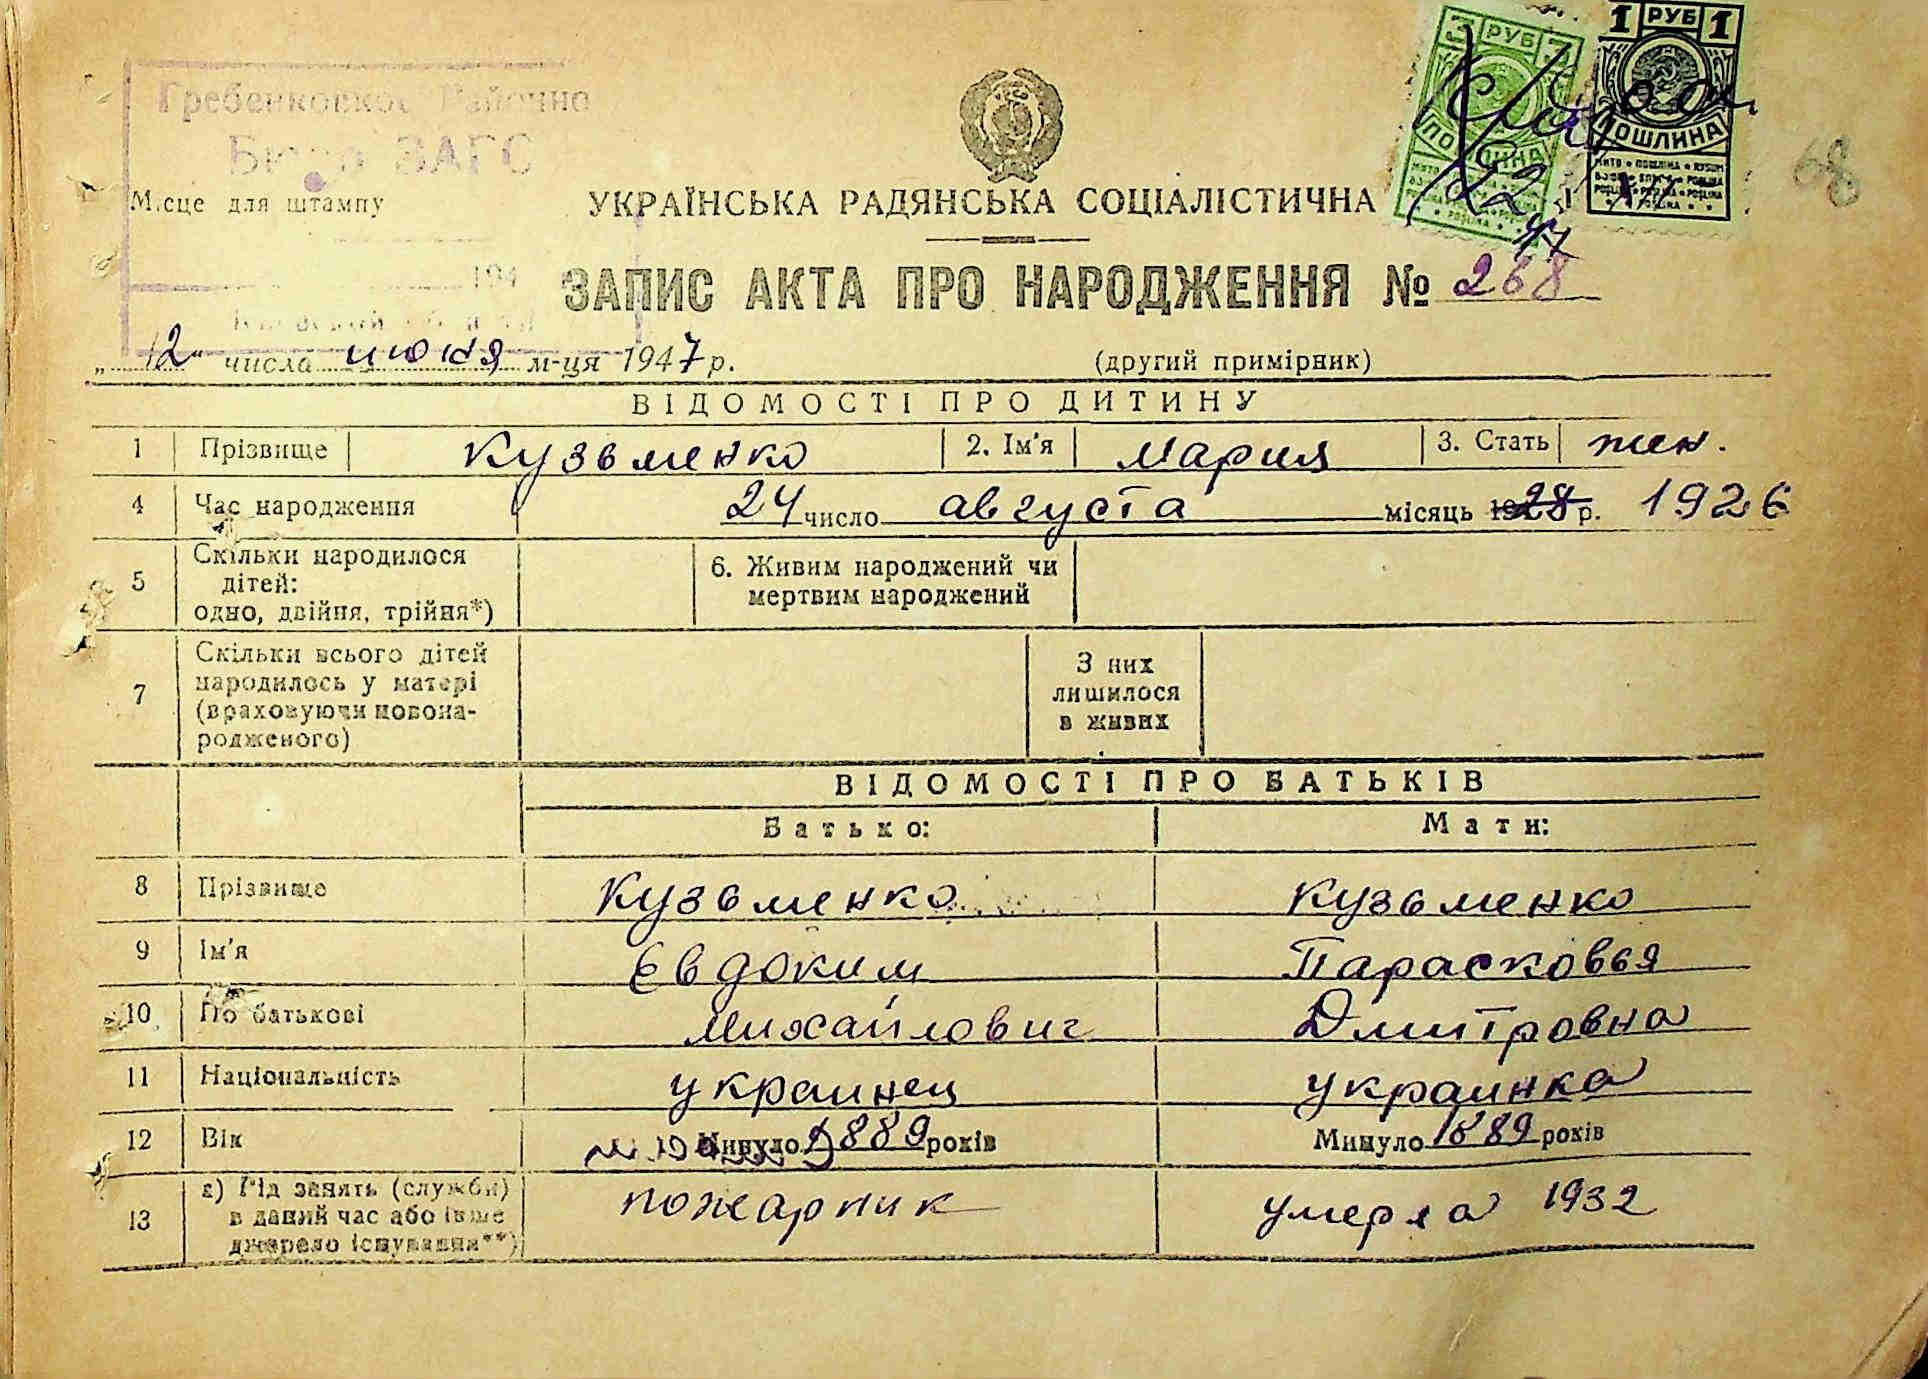 Гребенковское Районно
Бюро ЗАГС
Місце для штампу
194
3 РУБ 3
ПОШЛИНА
1 РУБ 1
ПОШЛИНА
68
УКРАЇНСЬКА РАДЯНСЬКА СОЦІАЛІСТИЧНА
ЗАПИС АКТА ПРО НАРОДЖЕННЯ № 268
„12“ числа июня м-ця 1947 р. (другий примірник)
ВІДОМОСТІ ПРО ДИТИНУ
1 Прізвище Кузьменко 2. Ім'я Мария 3. Стать жен.
4 Час народження 24 число августа місяць 1928 р. 1926
5 Скільки народилося дітей: одно, двійня, трійня*) 6. Живим народжений чи мертвим народжений
7 Скільки всього дітей народилось у матері (враховуючи новонародженого) З них лишилося в живих
ВІДОМОСТІ ПРО БАТЬКІВ
Батько: Мати:
8 Прізвище Кузьменко Кузьменко
9 Ім'я Євдоким Парасковья
10 По батькові Михайлович Дмитровна
11 Національність украинец украинка
12 Вік Минуло 1889 років Минуло 1889 років
13 а) Рід занять (служби) в даний час або інше джерело існування**) пожарник умерла 1932